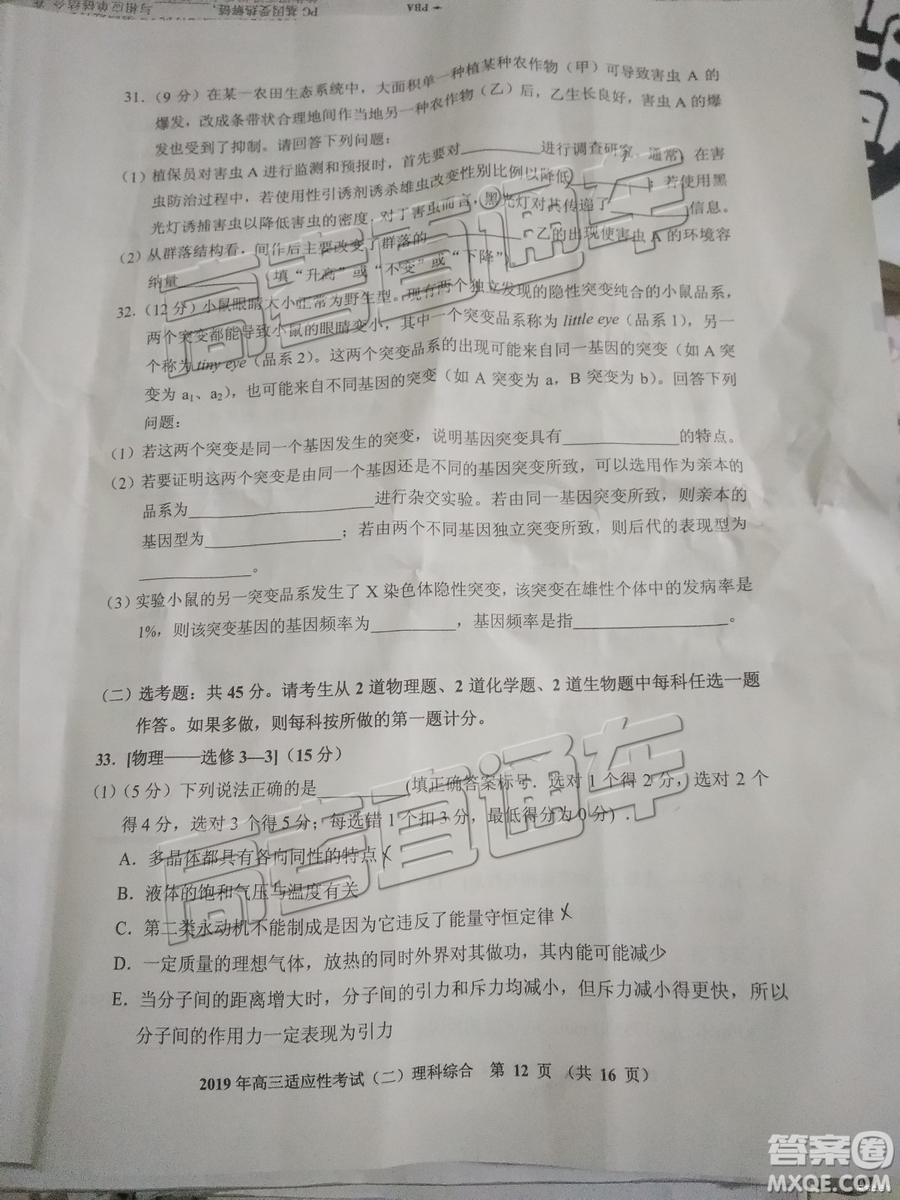 PC 基因受热解链，与相应单链结合
PBA
31.（9 分）在某一农田生态系统中，大面积单一种植某种农作物（甲）可导致害虫 A 的
爆发，改成条带状合理地间作当地另一种农作物（乙）后，乙生长良好，害虫 A 的爆
发也受到了抑制。请回答下列问题：
（1）植保员对害虫 A 进行监测和预报时，首先要对__________进行调查研究。通常，在害
虫防治过程中，若使用性引诱剂诱杀雄虫改变性别比例以降低__________；若使用黑
光灯诱捕害虫以降低害虫的密度，对于害虫而言，黑光灯对其传递了__________信息。
（2）从群落结构看，间作后主要改变了群落的__________，乙的出现使害虫 A 的环境容
纳量__________（填“升高”或“不变”或“下降”）
32.（12 分）小鼠眼睛大小正常为野生型。现有两个独立发现的隐性突变纯合的小鼠品系，
两个突变都能导致小鼠的眼睛变小，其中一个突变品系称为 little eye（品系 1），另一
个称为 tiny eye（品系 2）。这两个突变品系的出现可能来自同一基因的突变（如 A 突
变为 a₁、a₂），也可能来自不同基因的突变（如 A 突变为 a，B 突变为 b）。回答下列
问题：
（1）若这两个突变是同一个基因发生的突变，说明基因突变具有______________的特点。
（2）若要证明这两个突变是由同一个基因还是不同的基因突变所致，可以选用作为亲本的
品系为______________________进行杂交实验。若由同一基因突变所致，则亲本的
基因型为________________；若由两个不同基因独立突变所致，则后代的表现型为
______________。
（3）实验小鼠的另一突变品系发生了 X 染色体隐性突变，该突变在雄性个体中的发病率是
1%，则该突变基因的基因频率为__________，基因频率是指__________________。
（二）选考题：共 45 分。请考生从 2 道物理题、2 道化学题、2 道生物题中每科任选一题
作答。如果多做，则每科按所做的第一题计分。
33．[物理——选修 3—3]（15 分）
（1）（5 分）下列说法正确的是__________（填正确答案标号．选对 1 个得 2 分，选对 2 个
得 4 分，选对 3 个得 5 分；每选错 1 个扣 3 分，最低得分为 0 分）．
A．多晶体都具有各向同性的特点
B．液体的饱和气压与温度有关
C．第二类永动机不能制成是因为它违反了能量守恒定律
D．一定质量的理想气体，放热的同时外界对其做功，其内能可能减少
E．当分子间的距离增大时，分子间的引力和斥力均减小，但斥力减小得更快，所以
分子间的作用力一定表现为引力
2019 年高三适应性考试（二）理科综合 第 12 页 （共 16 页）
高考直通车
高考直通车
答案圈
MXQE.COM